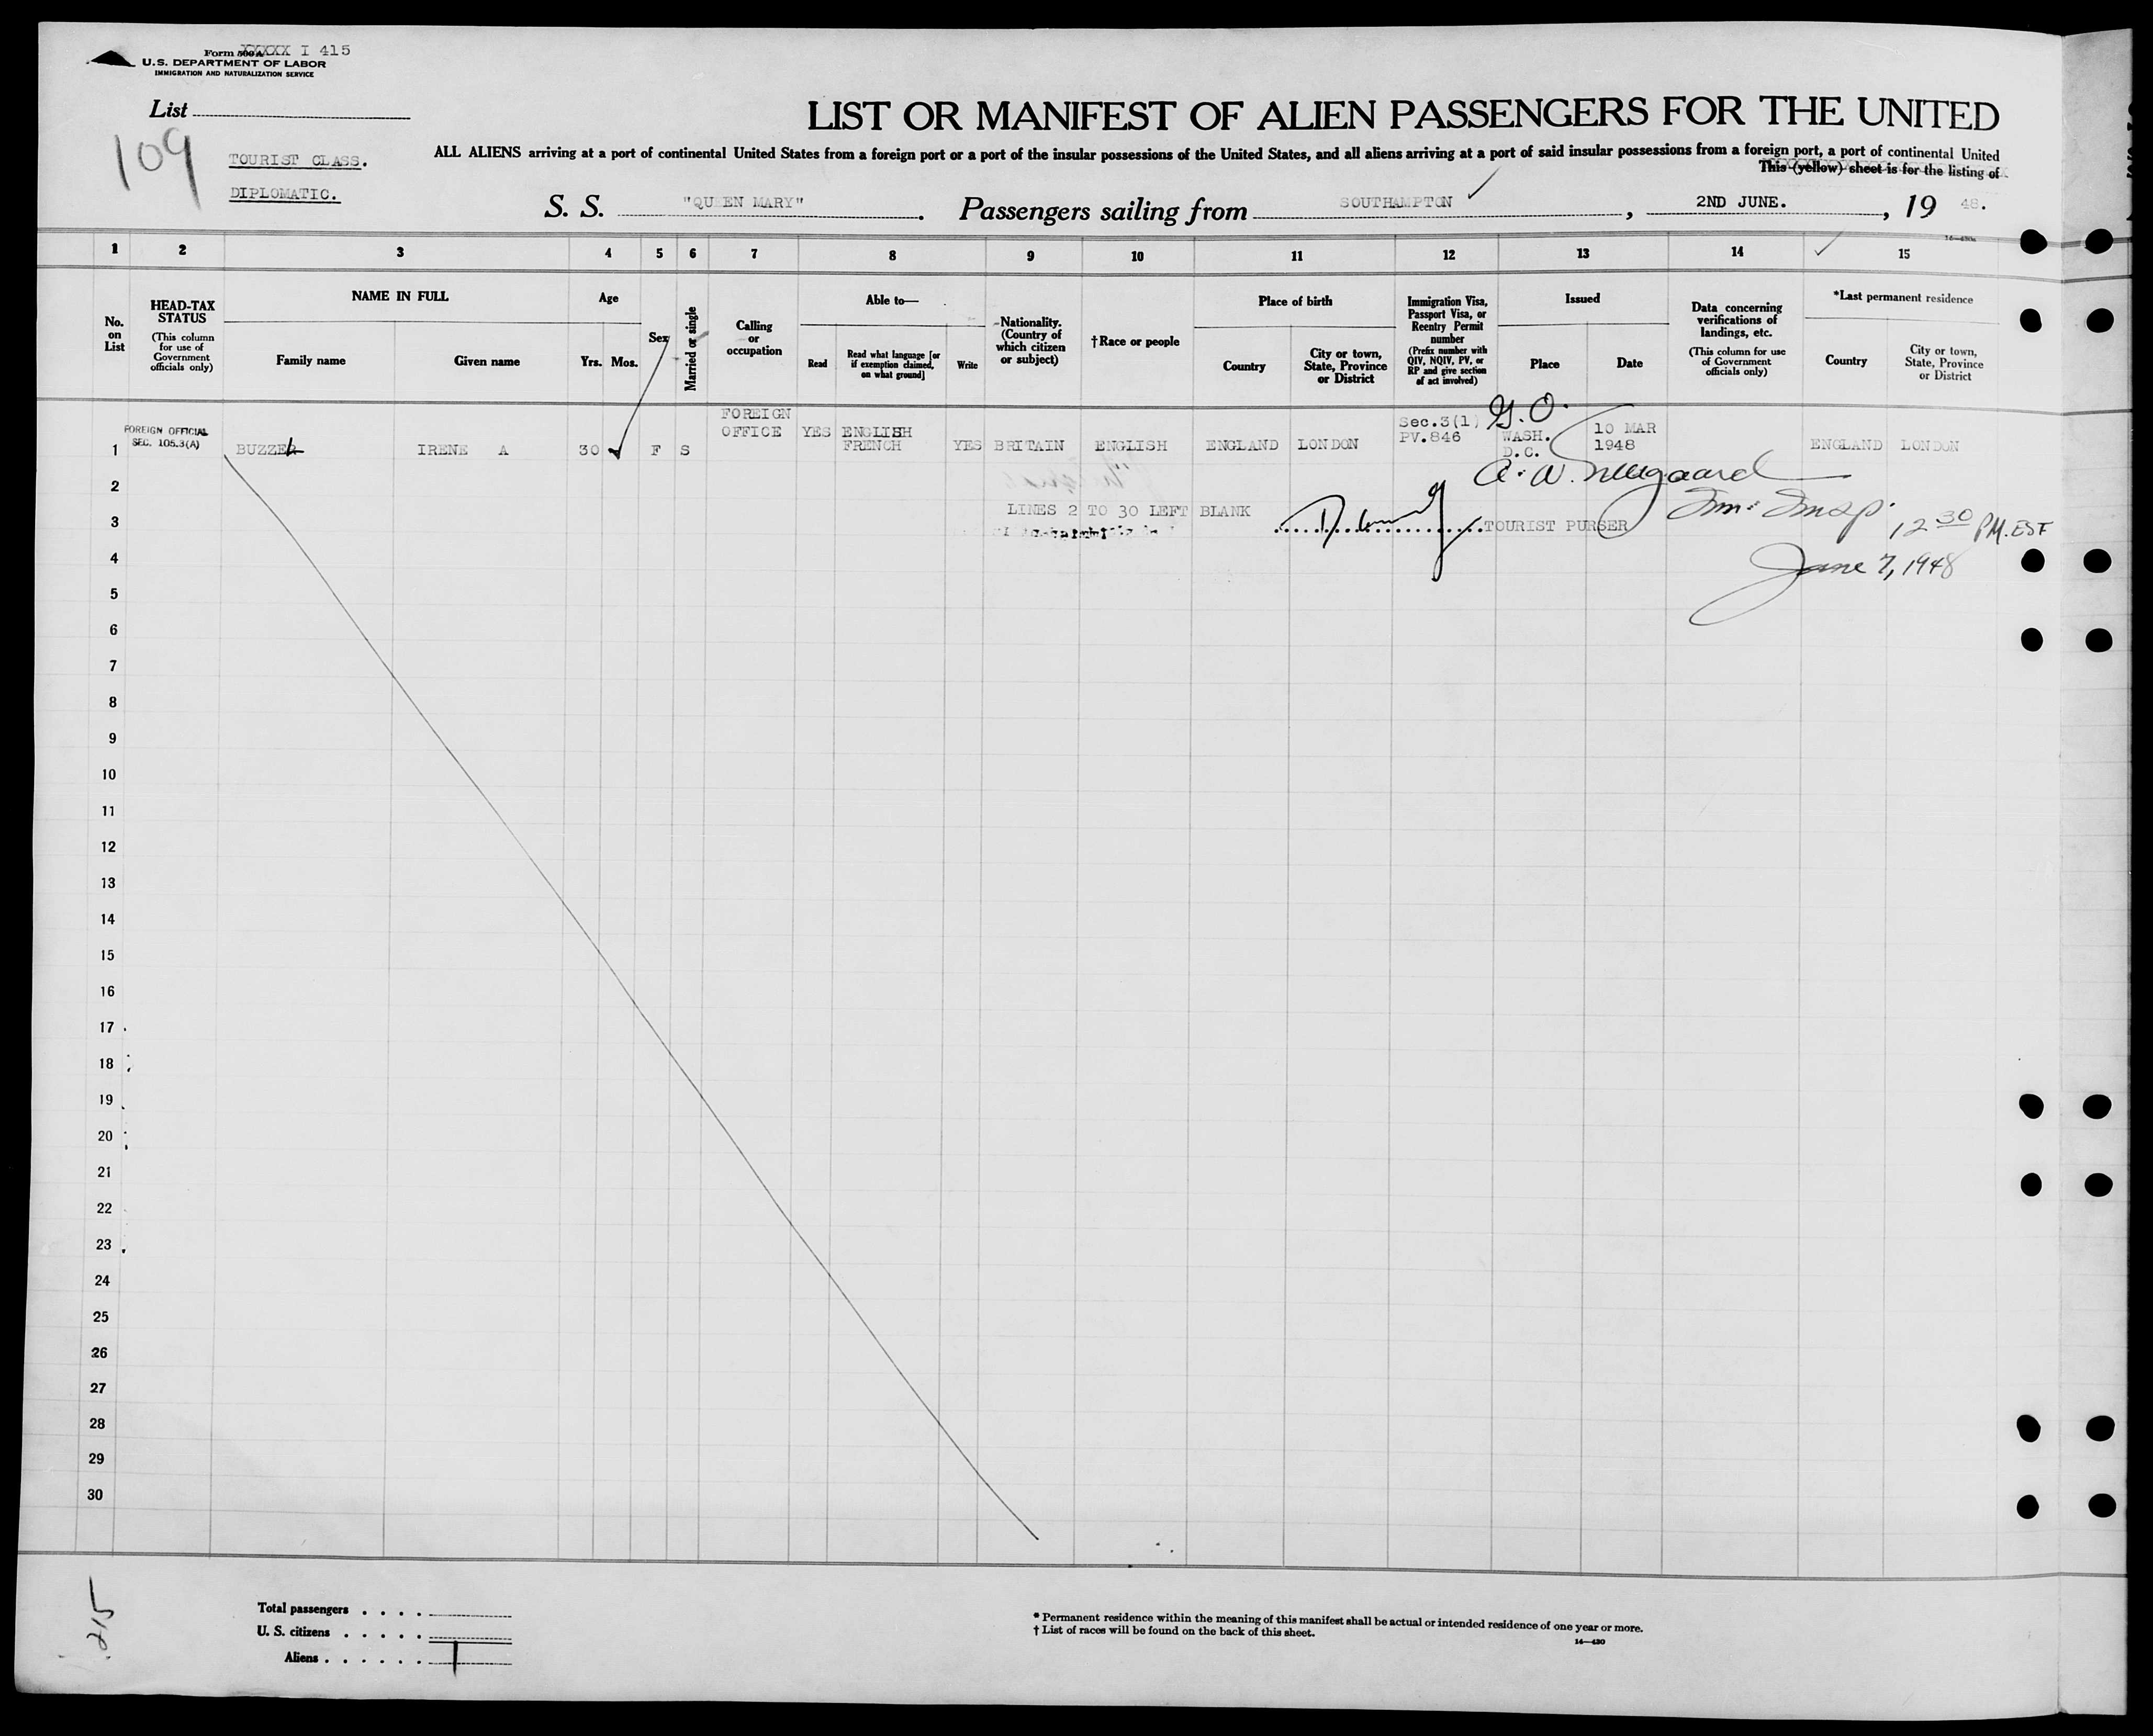 Form XXXXX I 415
U.S. DEPARTMENT OF LABOR
IMMIGRATION AND NATURALIZATION SERVICE
List
109
TOURIST CLASS.
DIPLOMATIC.
LIST OR MANIFEST OF ALIEN PASSENGERS FOR THE UNITED
ALL ALIENS arriving at a port of continental United States from a foreign port or a port of the insular possessions of the United States, and all aliens arriving at a port of said insular possessions from a foreign port, a port of continental United
This (yellow) sheet is for the listing of
S. S. "QUEEN MARY". Passengers sailing from SOUTHAMPTON, 2ND JUNE., 19 48.
1 2 3 4 5 6 7 8 9 10 11 12 13 14 15
No. on List
HEAD-TAX STATUS
(This column for use of Government officials only)
NAME IN FULL
Family name
Given name
Age
Yrs. Mos.
Sex
Married or single
Calling or occupation
Able to—
Read
Read what language [or if exemption claimed, on what ground]
Write
Nationality. (Country of which citizen or subject)
†Race or people
Place of birth
Country
City or town, State, Province or District
Immigration Visa, Passport Visa, or Reentry Permit number
(Prefix number with QIV, NQIV, PV, or RP and give section of act involved)
Issued
Place
Date
Data concerning verifications of landings, etc.
(This column for use of Government officials only)
*Last permanent residence
Country
City or town, State, Province or District
1 FOREIGN OFFICIAL SEC. 105.3(A) IRENE A 30 F S FOREIGN OFFICE YES ENGLISH FRENCH YES BRITAIN ENGLISH ENGLAND LONDON Sec.3(1) PV.846 WASH. D.C. 10 MAR 1948 ENGLAND LONDON
G.O.
2
LINES 2 TO 30 LEFT BLANK
3 TOURIST PURSER
Imm. Insp.
12 30 PM. EST
June 7, 1948
4
5
6
7
8
9
10
11
12
13
14
15
16
17
18
19
20
21
22
23
24
25
26
27
28
29
30
215
Total passengers
U. S. citizens
Aliens 1
* Permanent residence within the meaning of this manifest shall be actual or intended residence of one year or more.
† List of races will be found on the back of this sheet.
14—430